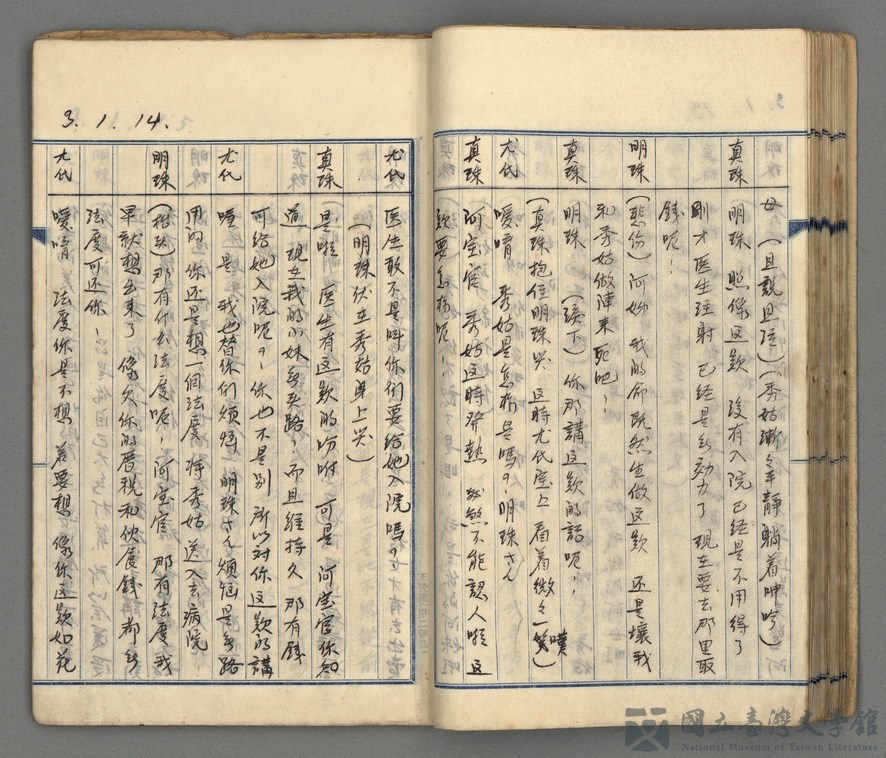 母 (且說且泣)(秀姑漸々平靜 躺着呻吟)
真珠 明珠 照像這款 沒有入院 已經是不用得了
剛才医生注射 已經是無効力了 現在要去那里取
錢呢！
明珠 (悲伤) 阿 我的命既然生做這款 还是壞我
和秀姑做陣来死吧！
真珠 明珠 (淚下) 你那講這款的話呢！
(真珠抱住明珠哭 這時尤代 上 看着微々一嘆)
尤代 嗳唷 秀姑是怎樣是嗎？ 明珠さん
真珠 阿宝官 秀姑這時發熱 不能認人啦 這
款要怎樣呢！
3. 1. 14.
尤代 医生敢不是叫你们要给她入院嗎？
(明珠伏在秀姑身上哭)
真珠 是啦 医生有這款的吩咐 可是 阿宝官你知
道 現在我的小妹無头路！而且維持久 那有錢
可给她入院呢？！你也不是别 所以对你這款的講
尤代 哑是 我也替你们煩惱 明珠さん 煩惱是無路
用的 你还是想一個法度 将秀姑送入去病院！
明珠 (抬头) 那有什么法度呢！阿宝官 那有法度我
早就想出来了 像欠你的厝税和伙食錢 都無
法度可还你！
尤代 嗳唷 法度你是不想 若要想 像你這款如花
國立臺灣文學館
National Museum of Taiwan Literature